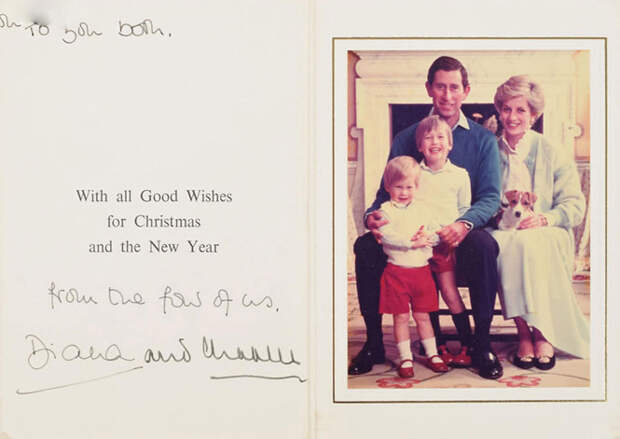 To you both.
With all Good Wishes
for Christmas
and the New Year
from the four of us.
Diana and Charles